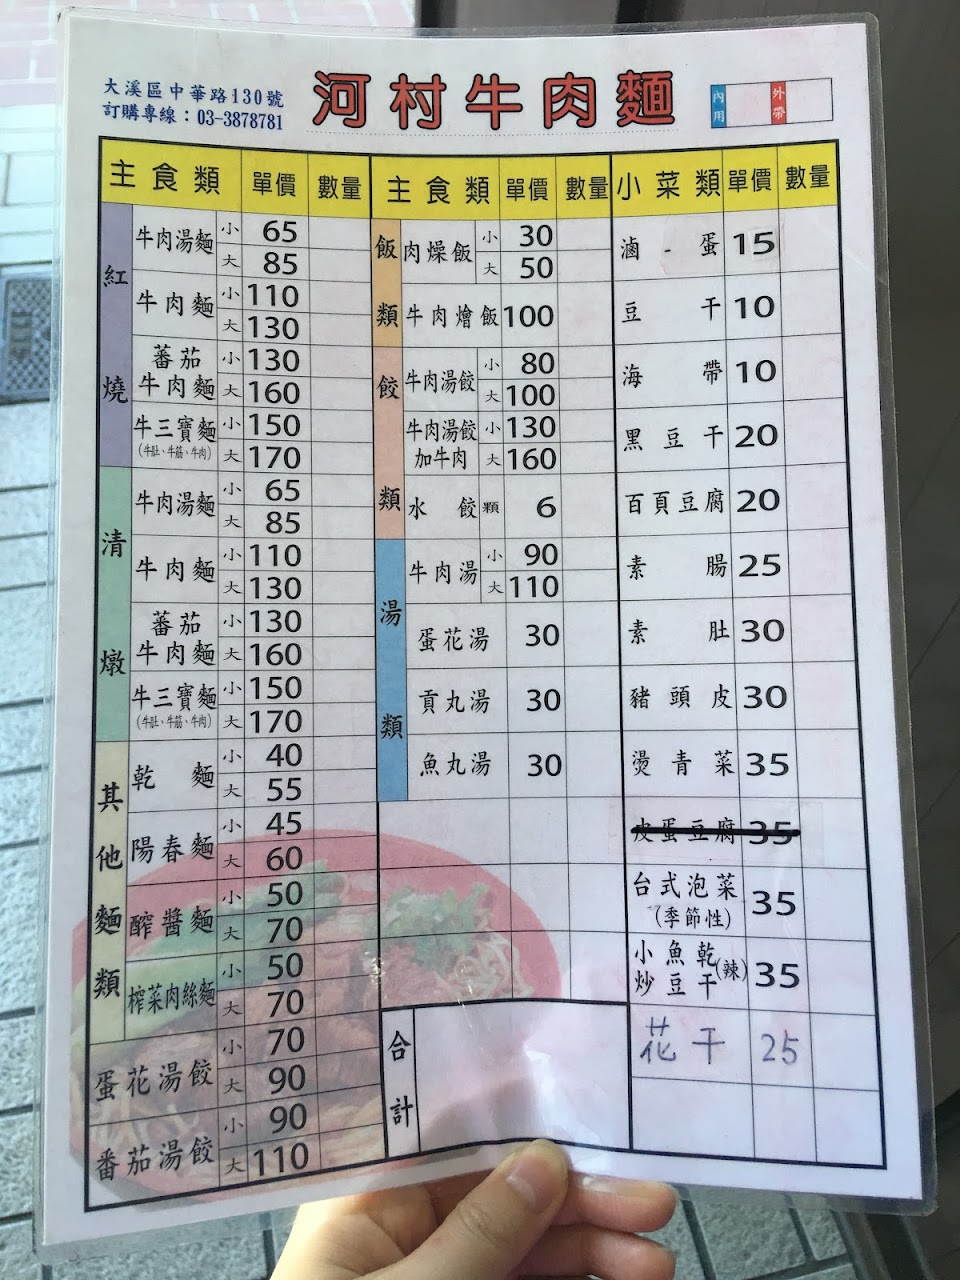 大溪區中華路130號
訂購專線：03-3878781
河村牛肉麵
內用 外帶
主食類 單價 數量 主食類 單價 數量 小菜類 單價 數量
紅燒
牛肉湯麵 小 65
大 85
牛肉麵 小 110
大 130
蕃茄牛肉麵 小 130
大 160
牛三寶麵 小 150
(牛肚、牛筋、牛肉) 大 170
清燉
牛肉湯麵 小 65
大 85
牛肉麵 小 110
大 130
蕃茄牛肉麵 小 130
大 160
牛三寶麵 小 150
(牛肚、牛筋、牛肉) 大 170
其他麵類
乾麵 小 40
大 55
陽春麵 小 45
大 60
醡醬麵 小 50
大 70
榨菜肉絲麵 小 50
大 70
蛋花湯餃 小 70
大 90
番茄湯餃 小 90
大 110
飯類
肉燥飯 小 30
大 50
牛肉燴飯 100
餃類
牛肉湯餃 小 80
大 100
牛肉湯餃 小 130
加牛肉 大 160
水餃 顆 6
湯類
牛肉湯 小 90
大 110
蛋花湯 30
貢丸湯 30
魚丸湯 30
合計
滷-蛋 15
豆干 10
海帶 10
黑豆干 20
百頁豆腐 20
素腸 25
素肚 30
豬頭皮 30
燙青菜 35
皮蛋豆腐 35
台式泡菜 35
(季節性)
小魚乾(辣) 35
炒豆干
花干 25